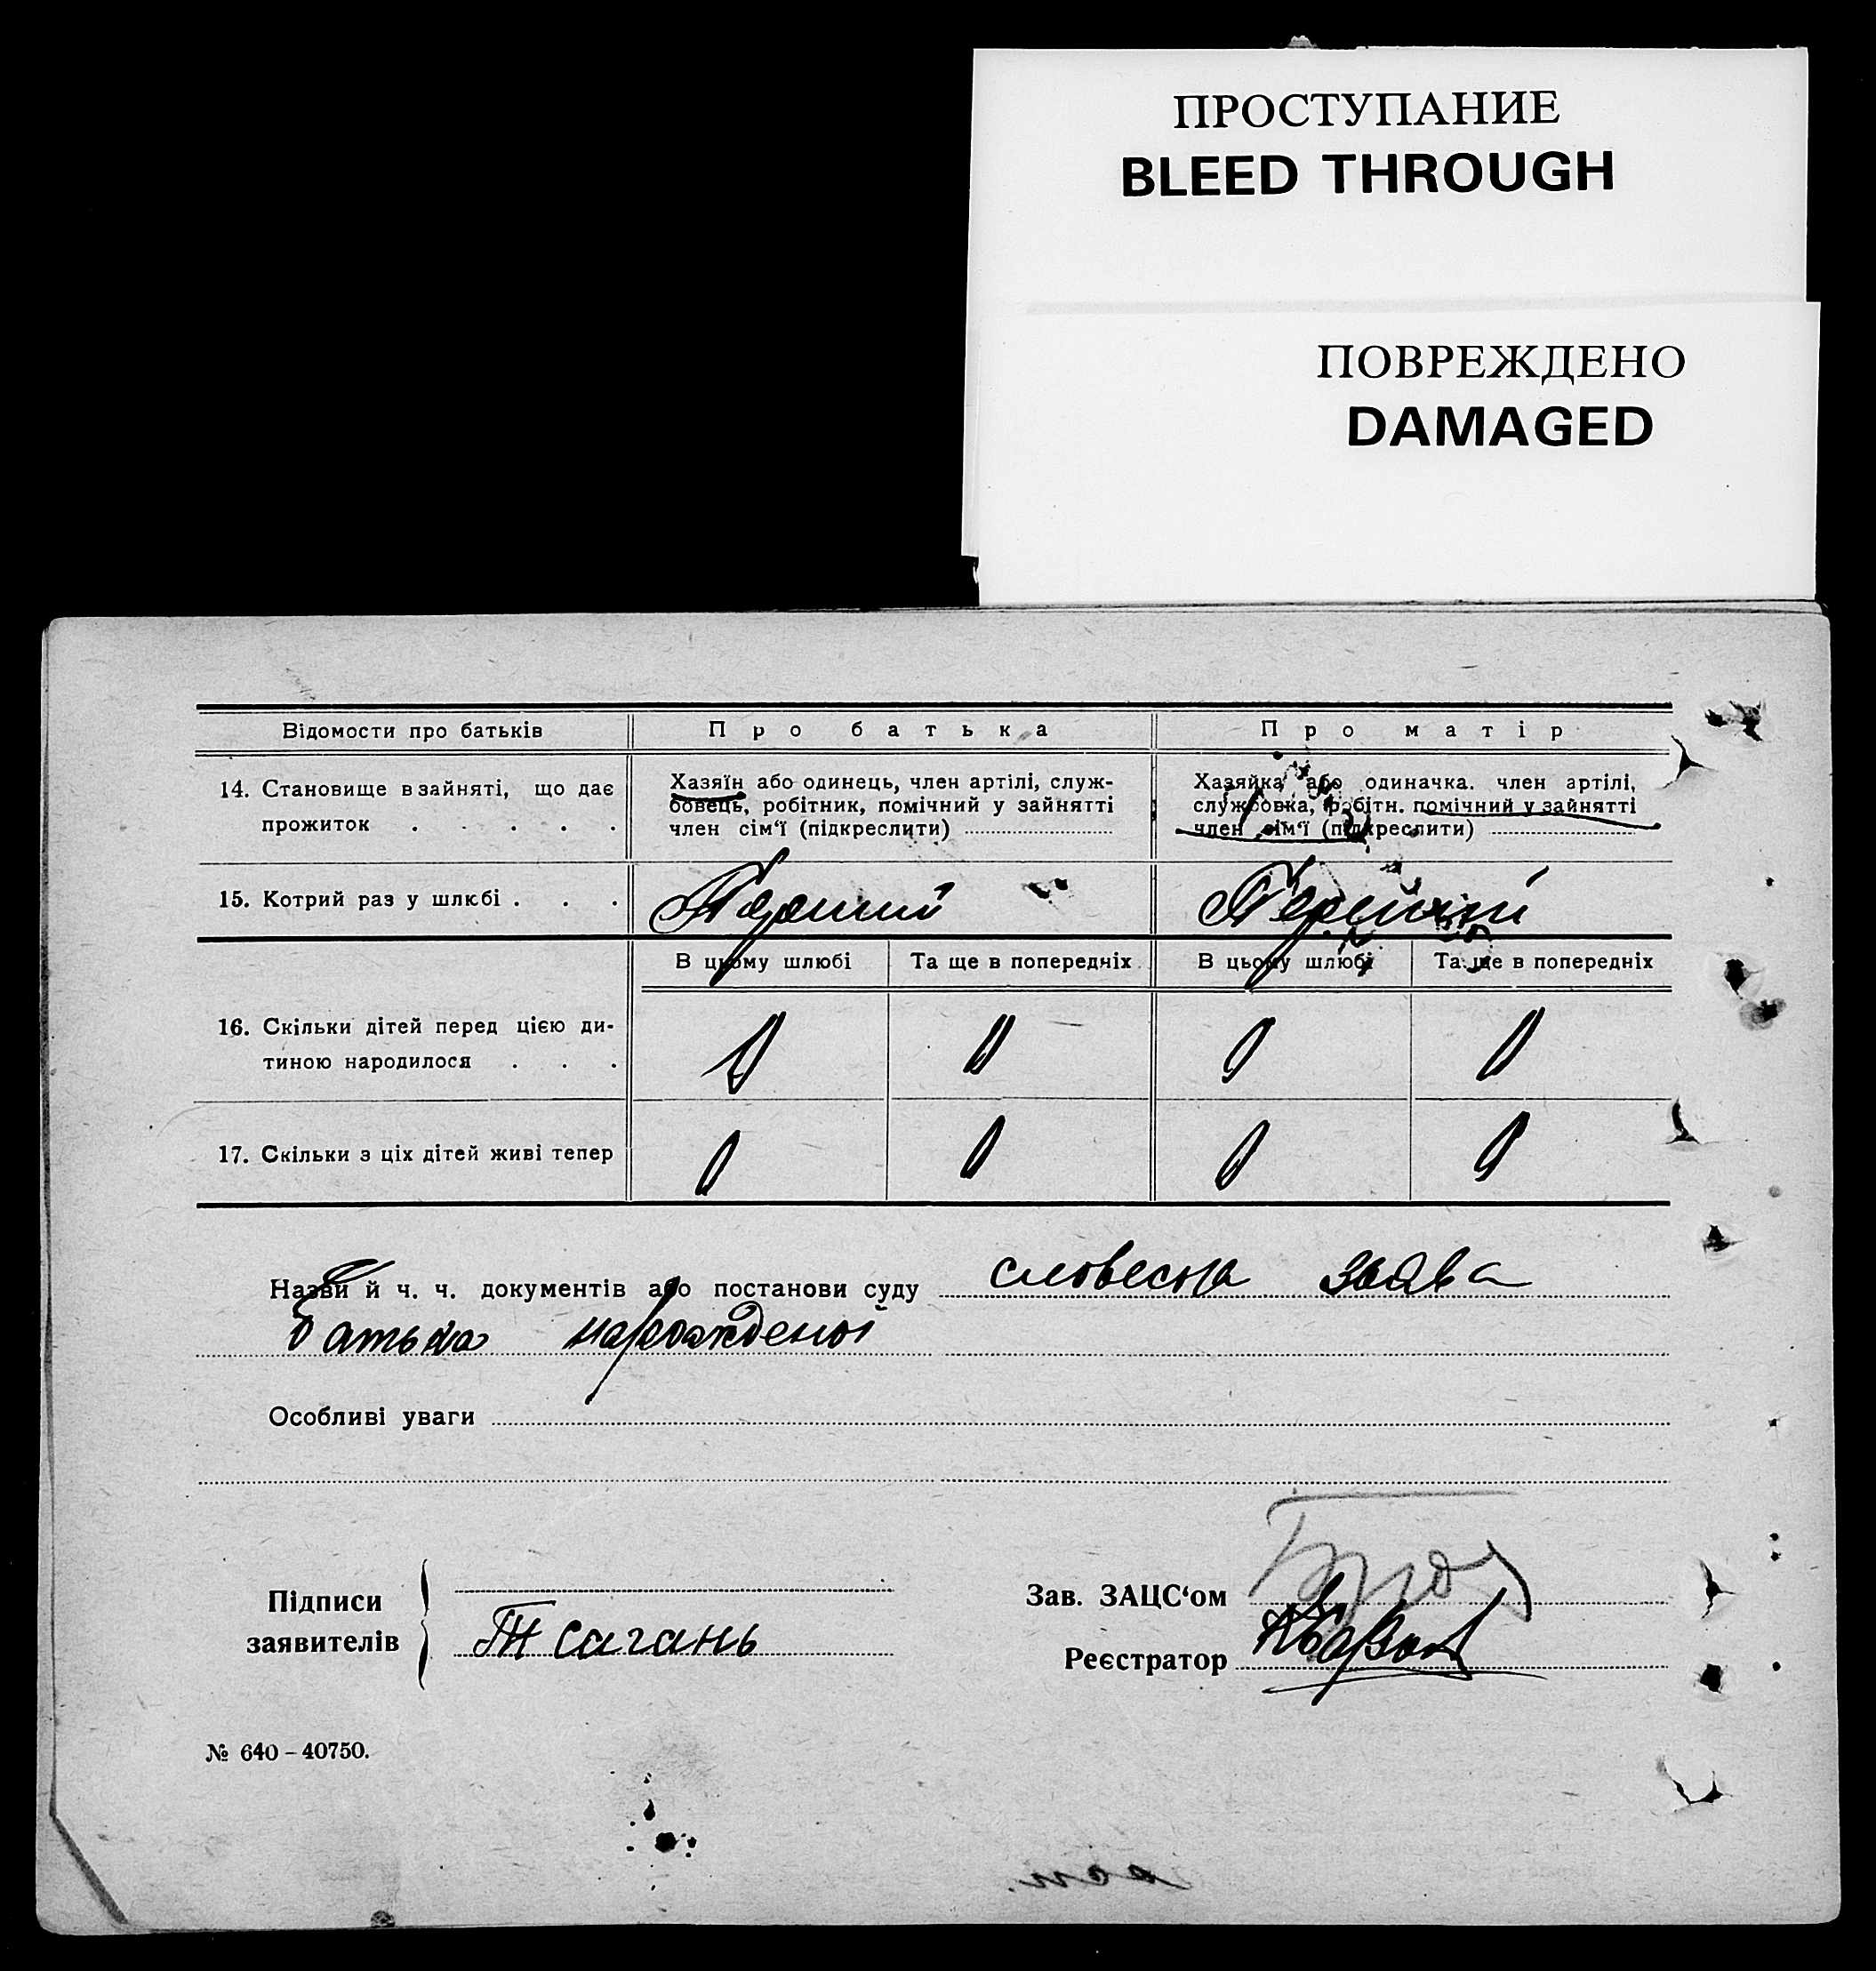 ПРОСТУПАНИЕ
BLEED THROUGH
ПОВРЕЖДЕНО
DAMAGED
Відомости про батьків Про батька Про матір
14. Становище в зайняті, що дає прожиток . . . . .
Хазяїн або одинець, член артілі, служ-
бовець, робітник, помічний у зайнятті
член сім‘ї (підкреслити)
Хазяйка, або одиначка. член артілі,
службовка, робітн. помічний у зайнятті
член сім‘ї (підкреслити)
15. Котрий раз у шлюбі . . . Перший
В цьому шлюбі Та ще в попередніх В цьому шлюбі Та ще в попередніх
16. Скільки дітей перед цією ди-
тиною народилося . . . 0 0 0 0
17. Скільки з ціх дітей живі тепер 0 0 0 0
Назви й ч. ч. документів або постанови суду словесна заява
батька
Особливі уваги
Підписи
заявителів
Сагань
Зав. ЗАЦС‘ом
Реєстратор
№ 640 – 40750.